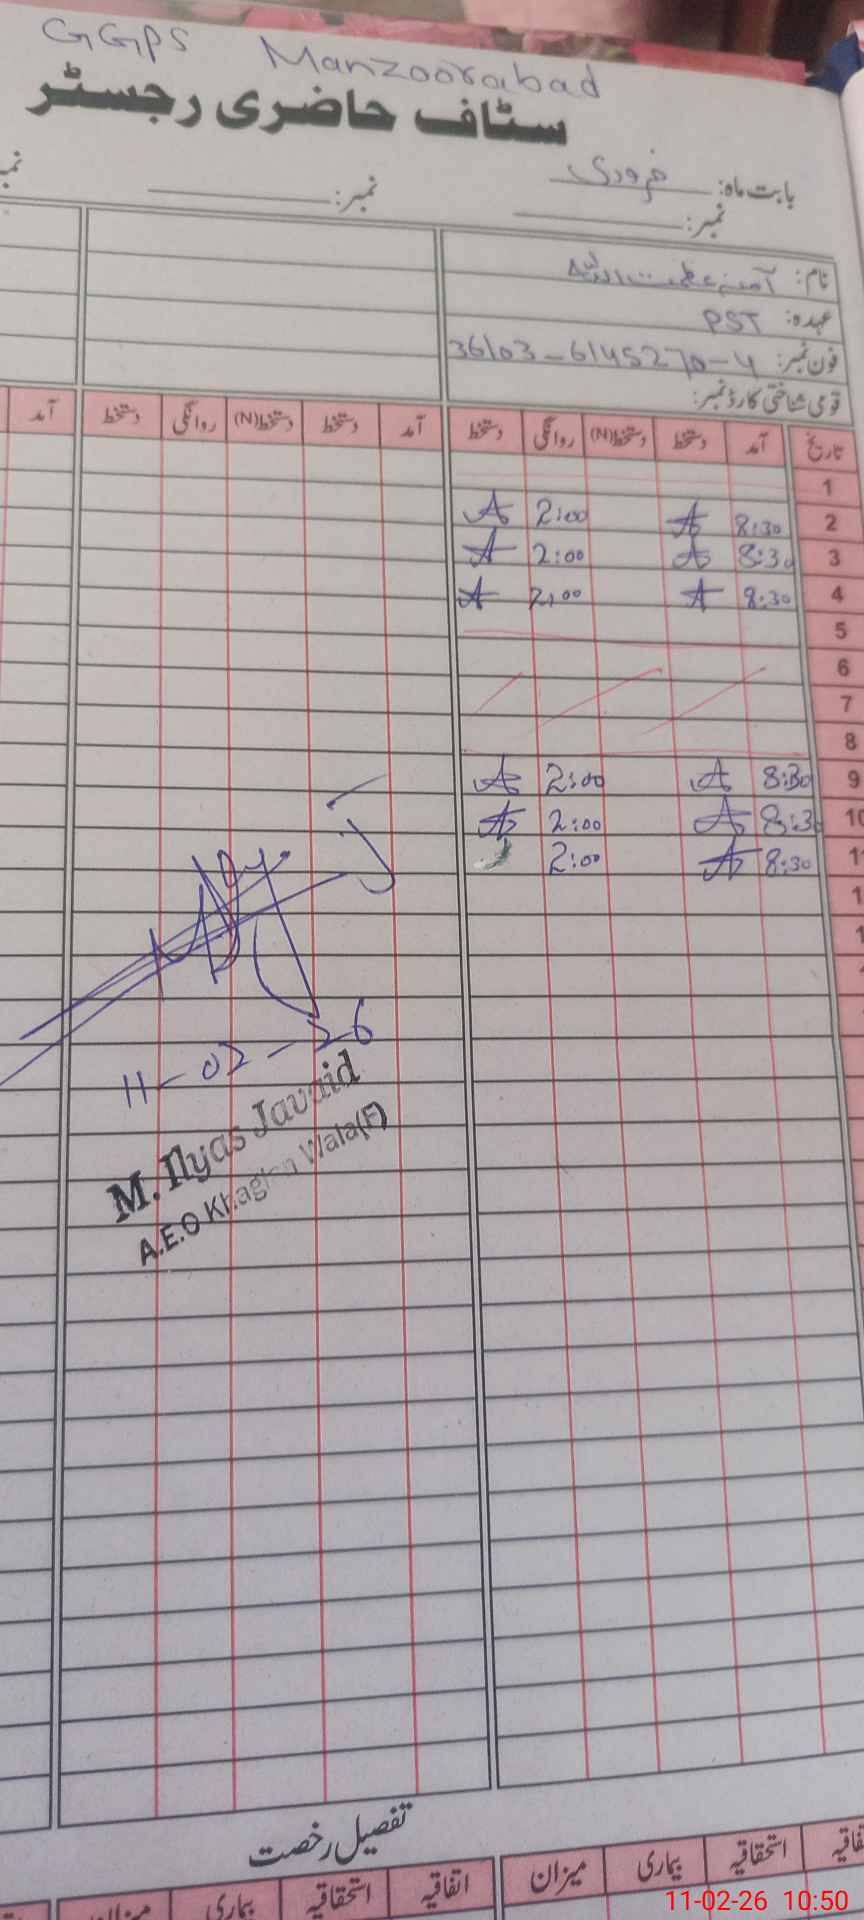 GGPS Manzoorabad
سٹاف حاضری رجسٹر
بابت ماہ: فروری
نمبر: نمبر:
نام: آمنہ عظمت اللہ
عہدہ: PST
فون نمبر: 36103-6145270-4
قومی شناختی کارڈ نمبر:
تاریخ آمد دستخط دستخط(N) روانگی دستخط آمد دستخط دستخط(N) روانگی دستخط آمد
1
2 8:30 A 2:00 A
3 8:30 A 2:00 A
4 8:30 A 2:00 A
5
6
7
8
9 8:30 A 2:00 A
10 8:30 A 2:00 A
11 8:30 A 2:00
11-02-26
M. Ilyas Javaid
A.E.O Wala(F)
تفصیل رخصت
استحقاقیہ بیماری میزان اتفاقیہ استحقاقیہ بیماری میزان
11-02-26 10:50